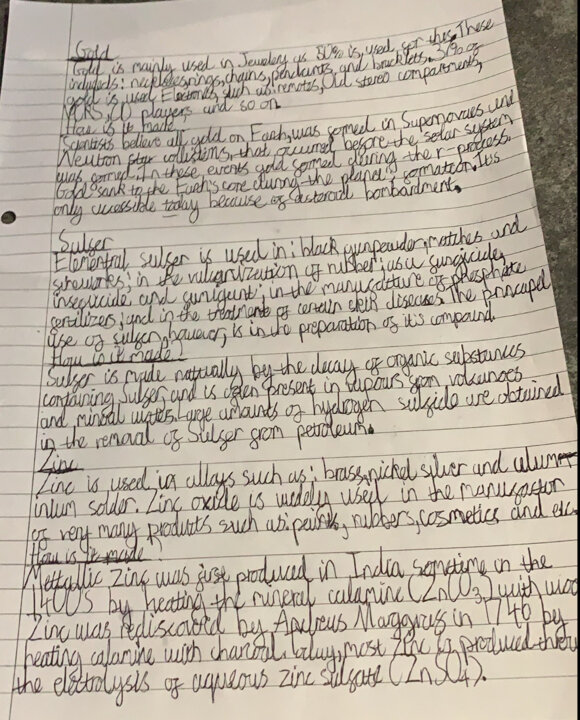 Gold
Gold is mainly used in Jewelery as 50% is used for this. These
includes: necklaces, rings, chains, pendants, and bracklets. 37% of
gold is used Electronics such as: remotes, Old stereo compartments,
VCRS, CD players and so on.
How is it made
Scientists believe all gold on Earth, was formed in Supernovaes and
Neutron star collisions, that occurred before the solar system
was formed. In these events gold formed during the r-process.
Gold sank to the Earth's core during the planet's formation. Its
only accessible today because of asteroid bombardment.
Sulfer
Elemental sulfer is used in: black gunpowder, matches and
fireworks; in the vulcanization of rubber; as a fungicide,
insecticide and fumigant; in the manufacture of phosphate
fertilizers; and in the treatment of certain skin diseases. The principal
use of sulfer, however, is in the preparation of it's compound.
How is it made
Sulfer is made naturally by the decay of organic substances
containing Sulfer, and is often present in vapours from volcanoes
and mineral waters. Large amounts of hydrogen sulfide are obtained
in the removal of Sulfer from petroleum.
Zinc
Zinc is used in allays such as: brass, nickel silver and alum
inium solder. Zinc oxide is widely used in the manufactor
of very many products such as: paints, rubbers, cosmetics and etc.
How is it made
Mettallic Zinc was first produced in India sometime in the
1400s by heating the mineral calamine (ZnCO3) with
Zinc was rediscovered by Andreus Marggraf in 1746 by
heating calamine with charcoal. today, most Zinc is produced
the electrolysis of aqueous zinc sulfate (ZnSO4).